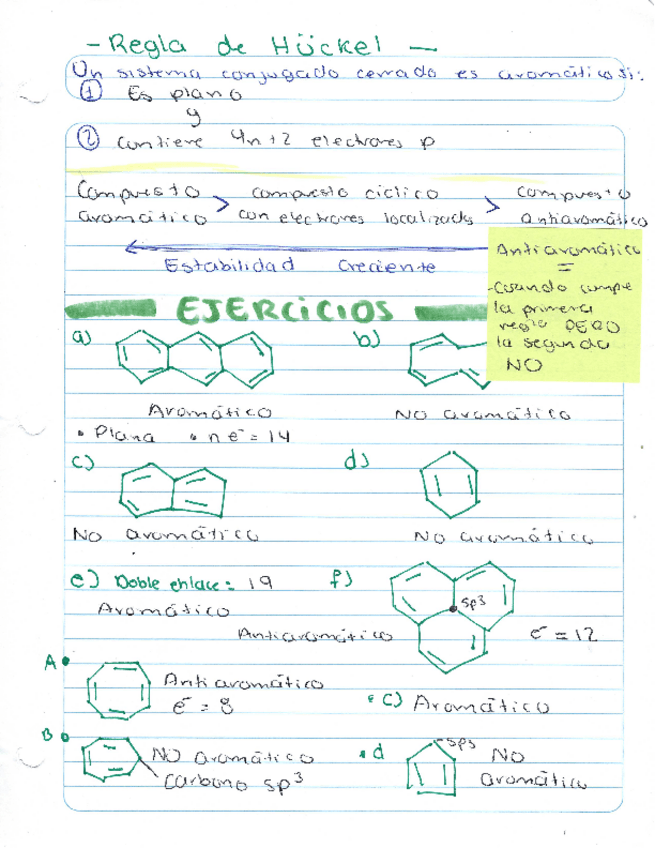 - Regla de Hückel -
Un sistema conjugado cerrado es aromático si:
① Es plano
y
② Contiene 4n+2 electrones p
Compuesto > compuesto cíclico > compuesto
aromático con electrones localizados antiaromático
Estabilidad Creciente
Antiaromático
=
-Cuando cumple
la primera
regla PERO
la segunda
NO
EJERCICIOS
a) b)
Aromático No aromático
• Plana • n e⁻ = 14
c) d)
No aromático No aromático
e) Doble enlace = 19 f)
Aromático sp3
Antiaromático e⁻ = 12
A • Antiaromático
e⁻ = 8 • c) Aromático
B • NO aromático • d sp3 No
carbono sp3 aromático